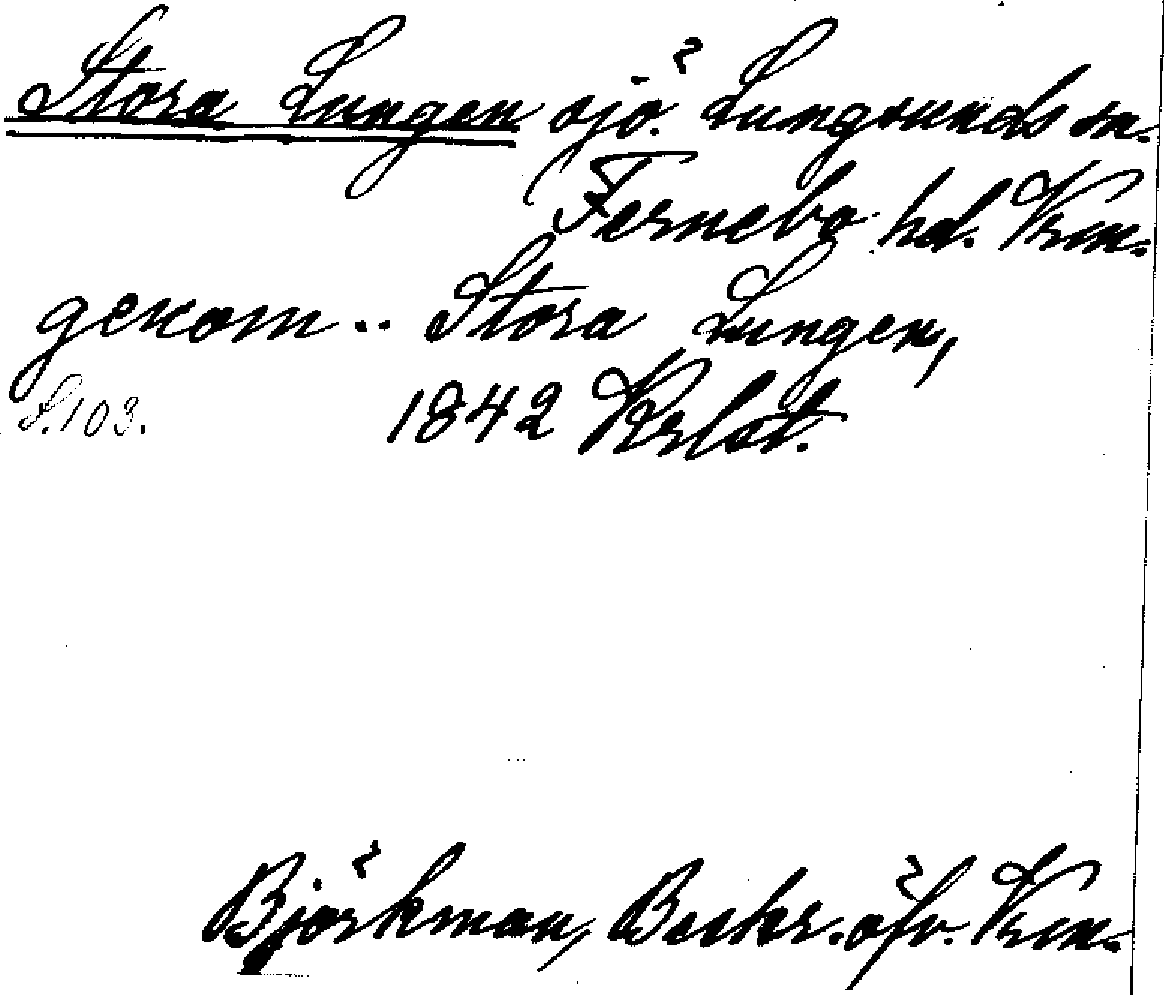 Stora Lungen sjö. Lungsunds sn.
Fernebo hd. Vrm.
genom .. Stora Lungen,
S. 103. 1842 Krlst.
Björkman, Beskr. öfv. Vrm.